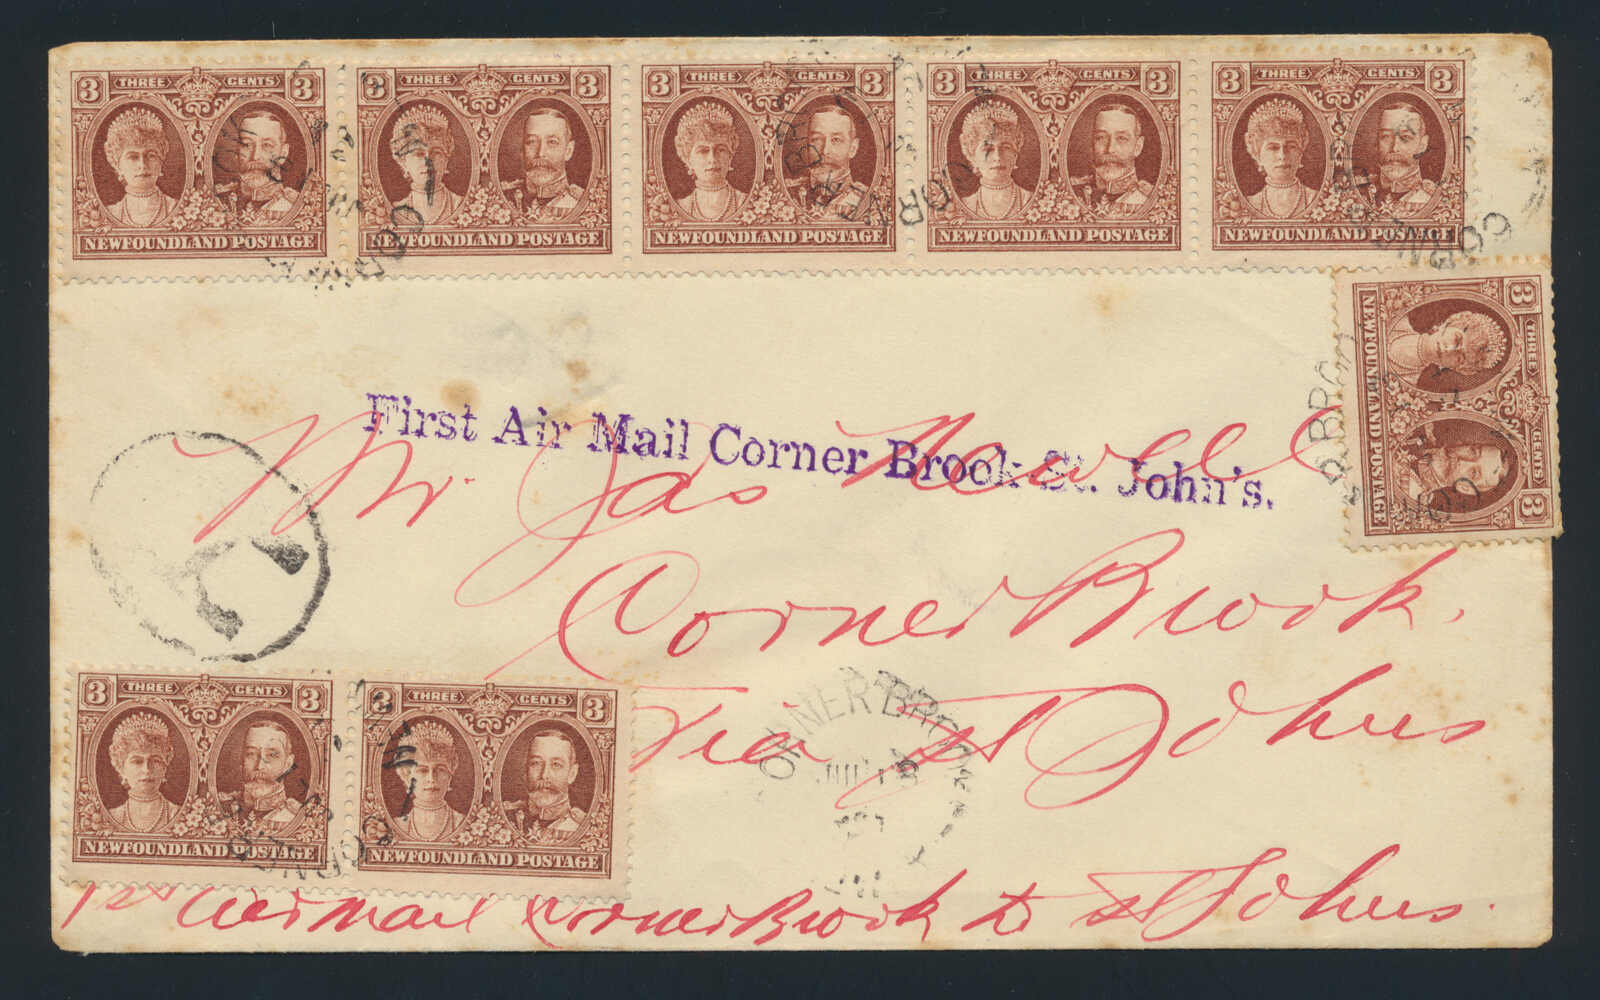 3 THREE CENTS 3 3 THREE CENTS 3 3 THREE CENTS 3 3 THREE CENTS 3 3 THREE CENTS 3
NEWFOUNDLAND POSTAGE NEWFOUNDLAND POSTAGE NEWFOUNDLAND POSTAGE NEWFOUNDLAND POSTAGE NEWFOUNDLAND POSTAGE
3 THREE CENTS 3
NEWFOUNDLAND POSTAGE
First Air Mail Corner Brook St. John's.
Mr. Jas Newell
Corner Brook.
Via St Johns
T
3 THREE CENTS 3 3 THREE CENTS 3
NEWFOUNDLAND POSTAGE NEWFOUNDLAND POSTAGE
CORNER BROOK
1st Air Mail Corner Brook to St Johns.